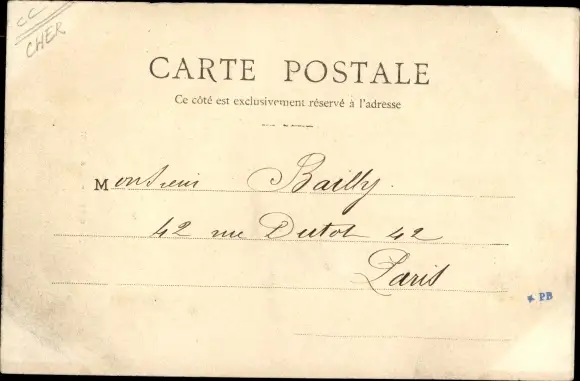 CC
CHER
CARTE POSTALE
Ce côté est exclusivement réservé à l'adresse
Monsieur Bailly.
42 rue Dutot 42
Paris
* PB